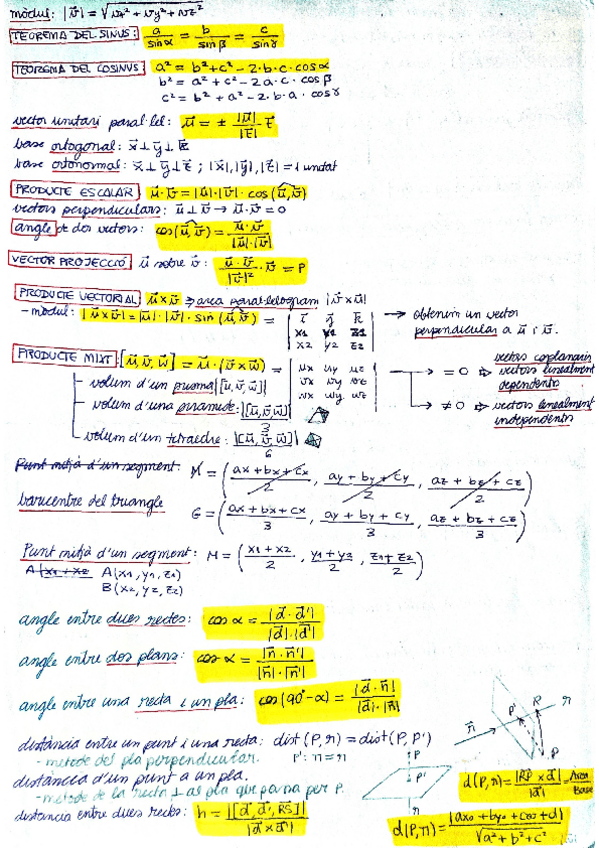 mòdul: |v⃗| = √vx² + vy² + vz²
TEOREMA DEL SINUS: a/sinα = b/sinβ = c/sinγ
TEOREMA DEL COSINUS: a² = b² + c² - 2·b·c·cosα
b² = a² + c² - 2a·c·cosβ
c² = b² + a² - 2·b·a·cosγ
vector unitari paral·lel: u⃗ = ± |u⃗|/|t⃗| · t⃗
base ortogonal: x⃗ ⊥ y⃗ ⊥ k⃗
base ortonormal: x⃗ ⊥ y⃗ ⊥ z⃗ ; |x⃗|, |y⃗|, |z⃗| = 1 unitat
PRODUCTE ESCALAR: u⃗·v⃗ = |u⃗|·|v⃗|·cos(u⃗,v⃗)
vectors perpendiculars: u⃗ ⊥ v⃗ → u⃗·v⃗ = 0
angle de dos vectors: cos(u⃗,v⃗) = u⃗·v⃗/|u⃗|·|v⃗|
VECTOR PROJECCIÓ u⃗ sobre v⃗: u⃗·v⃗/|v⃗|² · v⃗ = P
PRODUCTE VECTORIAL u⃗×v⃗ ⇒ area paral·lelogram |v⃗×u⃗|
- mòdul: |u⃗×v⃗| = |u⃗|·|v⃗|·sin(u⃗,v⃗) = | i⃗ j⃗ k⃗ | x1 y1 z1 | x2 y2 z2 | → obtenim un vector perpendicular a u⃗ i v⃗.
PRODUCTE MIXT: [u⃗,v⃗,w⃗] = u⃗·(v⃗×w⃗) = | ux uy uz | vx vy vz | wx wy wz |
→ = 0 ⇒ vectors coplanaris vectors linealment dependents
→ ≠ 0 ⇒ vectors linealment independents
volum d'un prisma |[u⃗,v⃗,w⃗]|
volum d'una piramide: |[u⃗,v⃗,w⃗]|/3
volum d'un tetraedre: |[u⃗,v⃗,w⃗]|/6
Punt mitjà d'un segment: M = (ax+bx+cx/2, ay+by+cy/2, az+bz+cz/2)
baricentre del triangle
G = (ax+bx+cx/3, ay+by+cy/3, az+bz+cz/3)
Punt mitjà d'un segment: M = (x1+x2/2, y1+y2/2, z1+z2/2)
A(x1+x2 A(x1,y1,z1)
B(x2,y2,z2)
angle entre dues rectes: cos α = |d⃗·d⃗'|/|d⃗|·|d⃗'|
angle entre dos plans: cos α = |n⃗·n⃗'|/|n⃗|·|n⃗'|
angle entre una recta i un pla: cos(90°-α) = |d⃗·n⃗|/|d⃗|·|n⃗|
distància entre un punt i una recta: dist(P,r) = dist(P,P')
- metode del pla perpendicular. P': n = r
d(P,r) = |RP×d⃗|/|d⃗| = Àrea/Base
distància d'un punt a un pla.
- metode de la recta ⊥ al pla que passa per P.
distancia entre dues rectes: h = |[d⃗,d⃗',RS]|/|d⃗×d⃗'|
d(P,π) = |ax0+by0+cz0+d|/√a²+b²+c²
n⃗
P'
R
r
P
P
P'